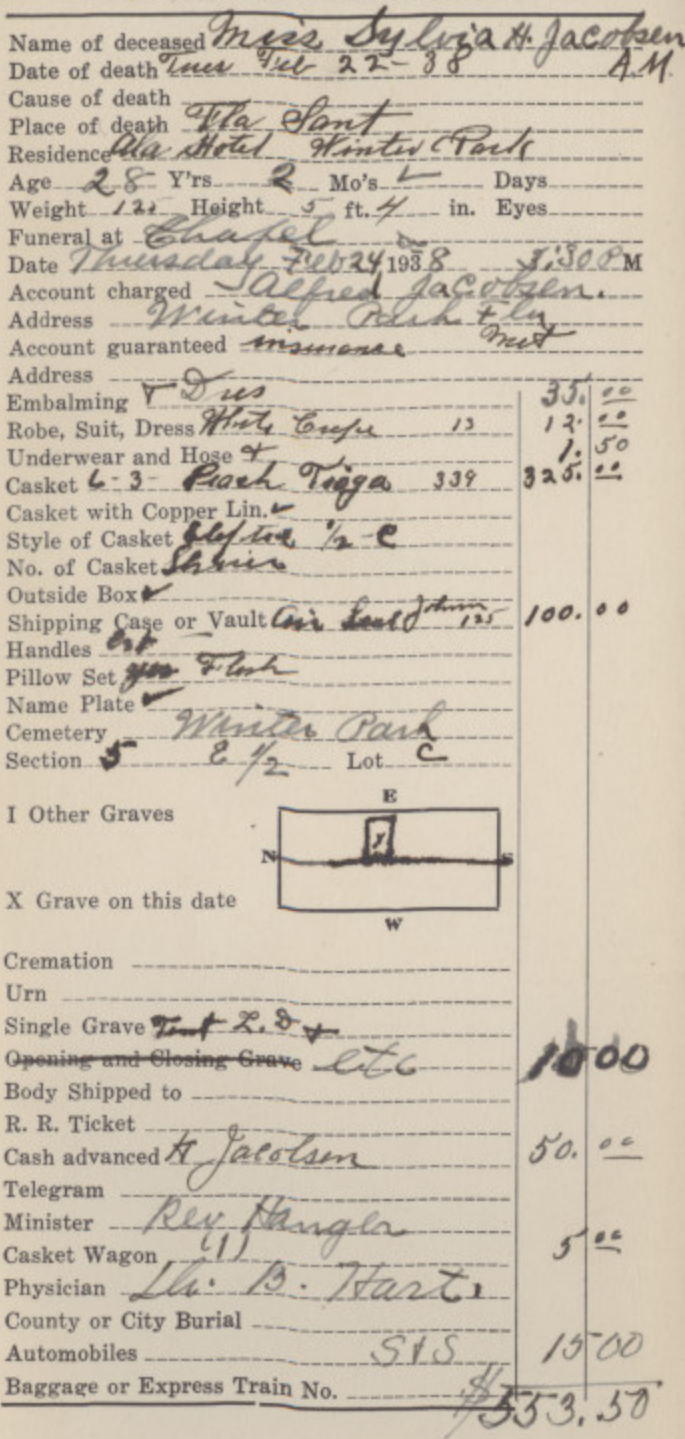 Name of deceased Miss Sylvia H. Jacobsen
Date of death Tues Feb 22-38 A.M.
Cause of death
Place of death Fla Sant
Residence Ala Hotel Winter Park
Age 28 Y'rs 2 Mo's ✓ Days
Weight 125 Height 5 ft. 4 in. Eyes
Funeral at Chapel
Date Thursday Feb 24 1938 3:30 P M
Account charged Alfred Jacobsen.
Address Winter Park Fla
Account guaranteed insurance Met
Address
Embalming + Dres 35.00
Robe, Suit, Dress White Crepe 13 12.00
Underwear and Hose + 1.50
Casket 6-3- Peach Tioga 339 325.00
Casket with Copper Lin. ✓
Style of Casket 1/2 C
No. of Casket
Outside Box ✓
Shipping Case or Vault Air Seal 125 100.00
Handles
Pillow Set yes
Name Plate ✓
Cemetery Winter Park
Section 5 E 1/2 Lot C
E
I Other Graves
N X S
X Grave on this date
W
Cremation
Urn
Single Grave Tent L. D +
Opening and Closing Grave etc 10 00
Body Shipped to
R. R. Ticket
Cash advanced H Jacobsen 50.00
Telegram
Minister Rev Hanger
Casket Wagon (1) 5 00
Physician Dr. B. Hart.
County or City Burial
Automobiles S+S 15 00
Baggage or Express Train No. $553.50